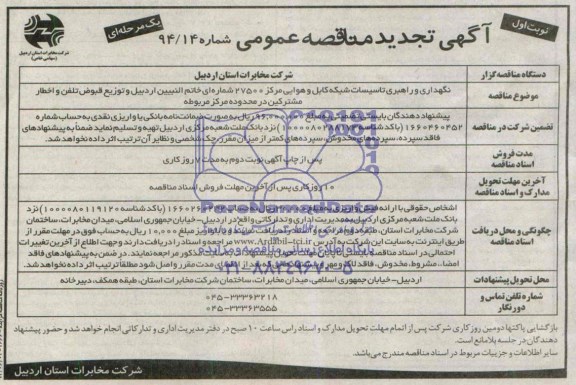 نوبت اول
آگهی تجدید مناقصه عمومی شماره ۹۴/۱۴
یک مرحله‌ای
شرکت مخابرات استان اردبیل
(سهامی خاص)
دستگاه مناقصه گزار
شرکت مخابرات استان اردبیل
موضوع مناقصه
نگهداری و راهبری تاسیسات شبکه کابل و هوایی مرکز ۲۷۵۰۰ شماره‌ای خاتم النبیین اردبیل و توزیع قبوض تلفن و اخطار
مشترکین در محدوده مرکز مربوطه
تضمین شرکت در مناقصه
پیشنهاد دهندگان بایستی تضمینی به مبلغ ریال به صورت ضمانت‌نامه بانکی یا واریزی نقدی به حساب شماره
نزد بانک ملت شعبه مرکزی اردبیل تهیه و تسلیم نماید ضمناً به پیشنهادهای
فاقد سپرده، سپرده‌های مخدوش، سپرده‌های کمتر از میزان مقرر، چک شخصی و نظایر آن ترتیب اثر داده نخواهد شد.
مدت فروش
اسناد مناقصه
پس از چاپ آگهی نوبت دوم به مدت ۷ روز کاری
آخرین مهلت تحویل
مدارک و اسناد مناقصه
۱۰ روز کاری پس از آخرین مهلت فروش اسناد مناقصه
چگونگی و محل دریافت
اسناد مناقصه
اشخاص حقوقی با ارائه فیش واریزی به مبلغ ریال به حساب نزد
بانک ملت شعبه مرکزی اردبیل به مدیریت اداری و تدارکاتی واقع در اردبیل - خیابان جمهوری اسلامی، میدان مخابرات، ساختمان
شرکت مخابرات استان، طبقه مبلغ ۱۰,۰۰۰ ریال به حساب فوق در مهلت مقرر از
طریق اینترنت به سایت این شرکت به آدرس www.Ardabil-tci.ir مراجعه و اسناد را دریافت دارند و جهت اطلاع از آخرین تغییرات
احتمالی در اسناد مناقصه مذکور مراجعه نمایند. در ضمن به پیشنهادهای فاقد
امضاء، مشروط، مخدوش، فاقد لاک و مهر مدت مقرر واصل شود مطلقاً ترتیب اثر داده نخواهد شد.
محل تحویل پیشنهادات
اردبیل - خیابان جمهوری اسلامی، میدان مخابرات، ساختمان شرکت مخابرات استان، طبقه همکف، دبیرخانه
شماره تلفن تماس و
دورنگار
۰۴۵-۳۳۳۶۳۲۱۸
۰۴۵-۳۳۳۶۳۵۵۵
بازگشایی پاکتها دومین روز کاری شرکت پس از اتمام مهلت تحویل مدارک و اسناد راس ساعت ۱۰ صبح در دفتر مدیریت اداری و تدارکاتی انجام خواهد شد و حضور پیشنهاد
دهندگان در جلسه بلامانع است.
سایر اطلاعات و جزییات مربوط در اسناد مناقصه مندرج می‌باشد.
شرکت مخابرات استان اردبیل
ParsNamadData
پایگاه اطلاع رسانی مناقصه و مزایده
۰۲۱-۸۸۳۴۹۶۷۰-۵